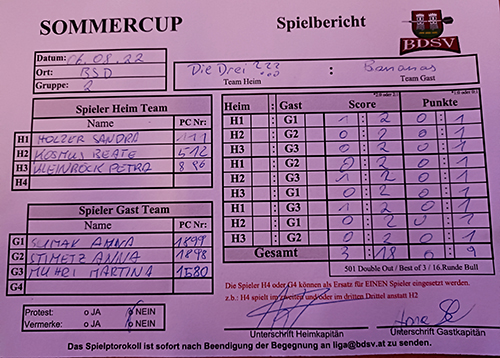 SOMMERCUP Spielbericht
BDSV
Datum: 16.08.22
Ort: BSD
Gruppe: 2
Die Drei ??? ... : Bananas
Team Heim Team Gast
Spieler Heim Team
Name PC Nr:
H1 HOLZER SANDRA 111
H2 KOSMUI BEATE 512
H3 KLEINRÖCK PETRA 896
H4
Spieler Gast Team
Name PC Nr:
G1 SLIMAK ANNA 1899
G2 STIMETZ ANNA 1898
G3 MUHRI MARTINA 1580
G4
Protest: o JA o NEIN
Vermerke: o JA o NEIN
*2:0 oder 2:1 *2:0 oder 0:1
Heim : Gast Score Punkte
H1 : G1 1 : 2 0 : 1
H2 : G2 0 : 2 0 : 1
H3 : G3 0 : 2 0 : 1
H1 : G2 0 : 2 0 : 1
H2 : G3 0 : 2 0 : 1
H3 : G1 0 : 2 0 : 1
H1 : G3 1 : 2 0 : 1
H2 : G1 0 : 2 0 : 1
H3 : G2 0 : 2 0 : 1
Gesamt 3 : 18 0 : 9
501 Double Out / Best of 3 / 16.Runde Bull
Die Spieler H4 oder G4 können als Ersatz für EINEN Spieler eingesetzt werden.
z.b.: H4 spielt im zweiten und/oder im dritten Drittel anstatt H2
Unterschrift Heimkapitän Unterschrift Gastkapitän
Das Spielptotokoll ist sofort nach Beendigung der Begegnung an liga@bdsv.at zu senden.